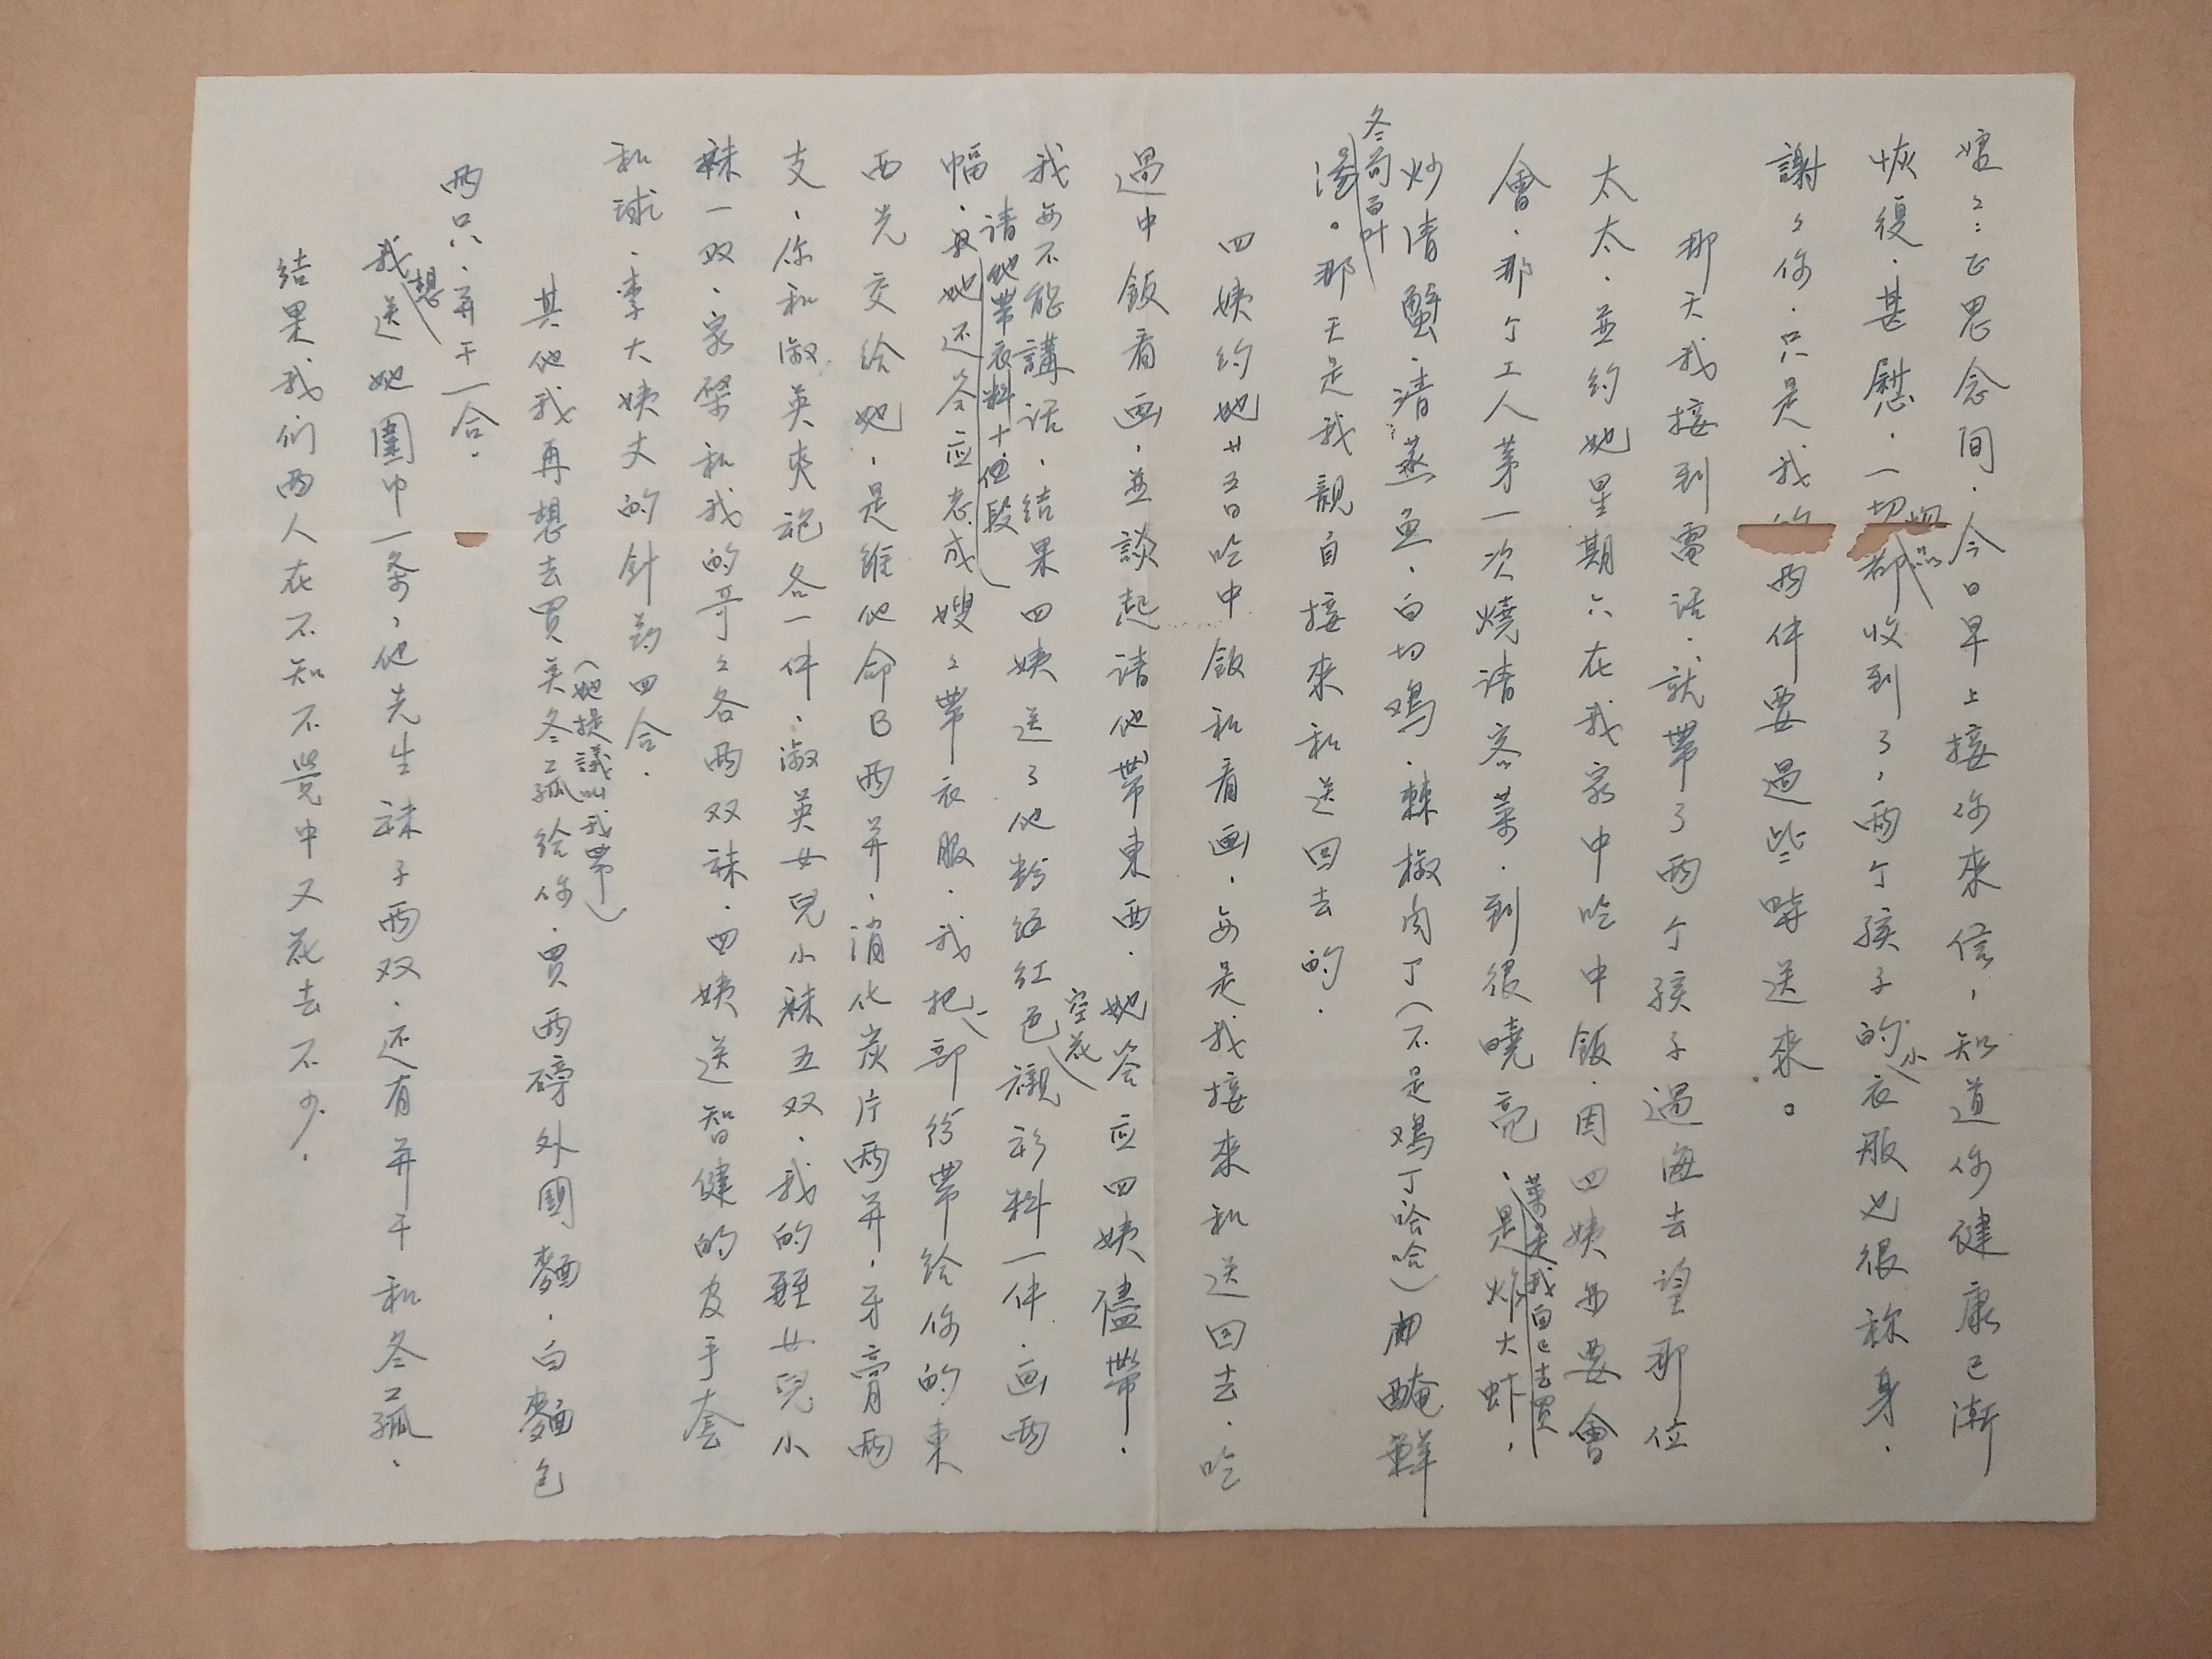 嬤々：正思念间．今日早上接你來信，知道你健康已漸
恢復．甚慰．一切物品都收到了，两个孩子的小衣服也很称身．
謝々你．只是我的两件要過些時送來。
那天我接到電话．就帶了两个孩子過海去望那位
太太．並约她星期六在我家中吃中飯．因四姨母要會
會．那个工人苐一次燒请客菜．到很嘵亮．是炸大虾，
菜是我自己去買
炒清蟹．清蒸魚．白切鸡．辣椒肉丁（不是鸡丁哈哈）醃鲜
冬荀百叶
湯。那天是我親自接來和送回去的．
四姨约她廿五日吃中飯和看画．每是我接來和送回去．吃
過中飯看画．並談起请他帶東西．她答应四姨儘帶．
我每不能講话．结果四姨送了他粉红色空花襯衫料一件．画两
请他帶衣料十但段
幅．她还答应老成嫂々帶衣服．我把一部份帶给你的東
西先交给她．是維他命B两并．消化炭片两并．牙膏两
支．你和淑英夾袍各一件．淑英女兒小袜五双．我的女兒小
袜一双．家槃和我的哥々各两双袜．四姨送智健的皮手套
和球．李大姨丈的針药四合．
（她提議叫我帶）
其他我再想去買关冬工孤给你．買两磅外國麵．白麵包
两只．并干一合．
我想送她圍巾一条，他先生袜子两双．还有并干和冬工孤．
结果我们两人在不知不覺中又花去不少．